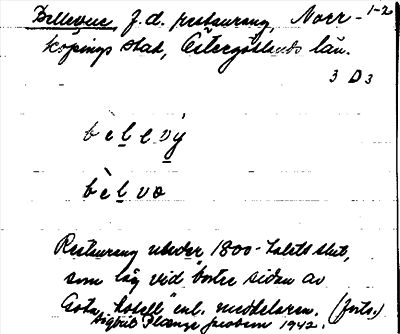 Bellevue, f.d. restaurang, Norr- 1-2
köpings stad, Östergötlands län.
3 D 3
bèlevý
bèlvo
Restaurang under 1800-talets slut,
som låg vid bortre sidan av
Göta hotell" enl. meddelaren. (Juts.)
Sigbrit Plænge Jacobson 1942.